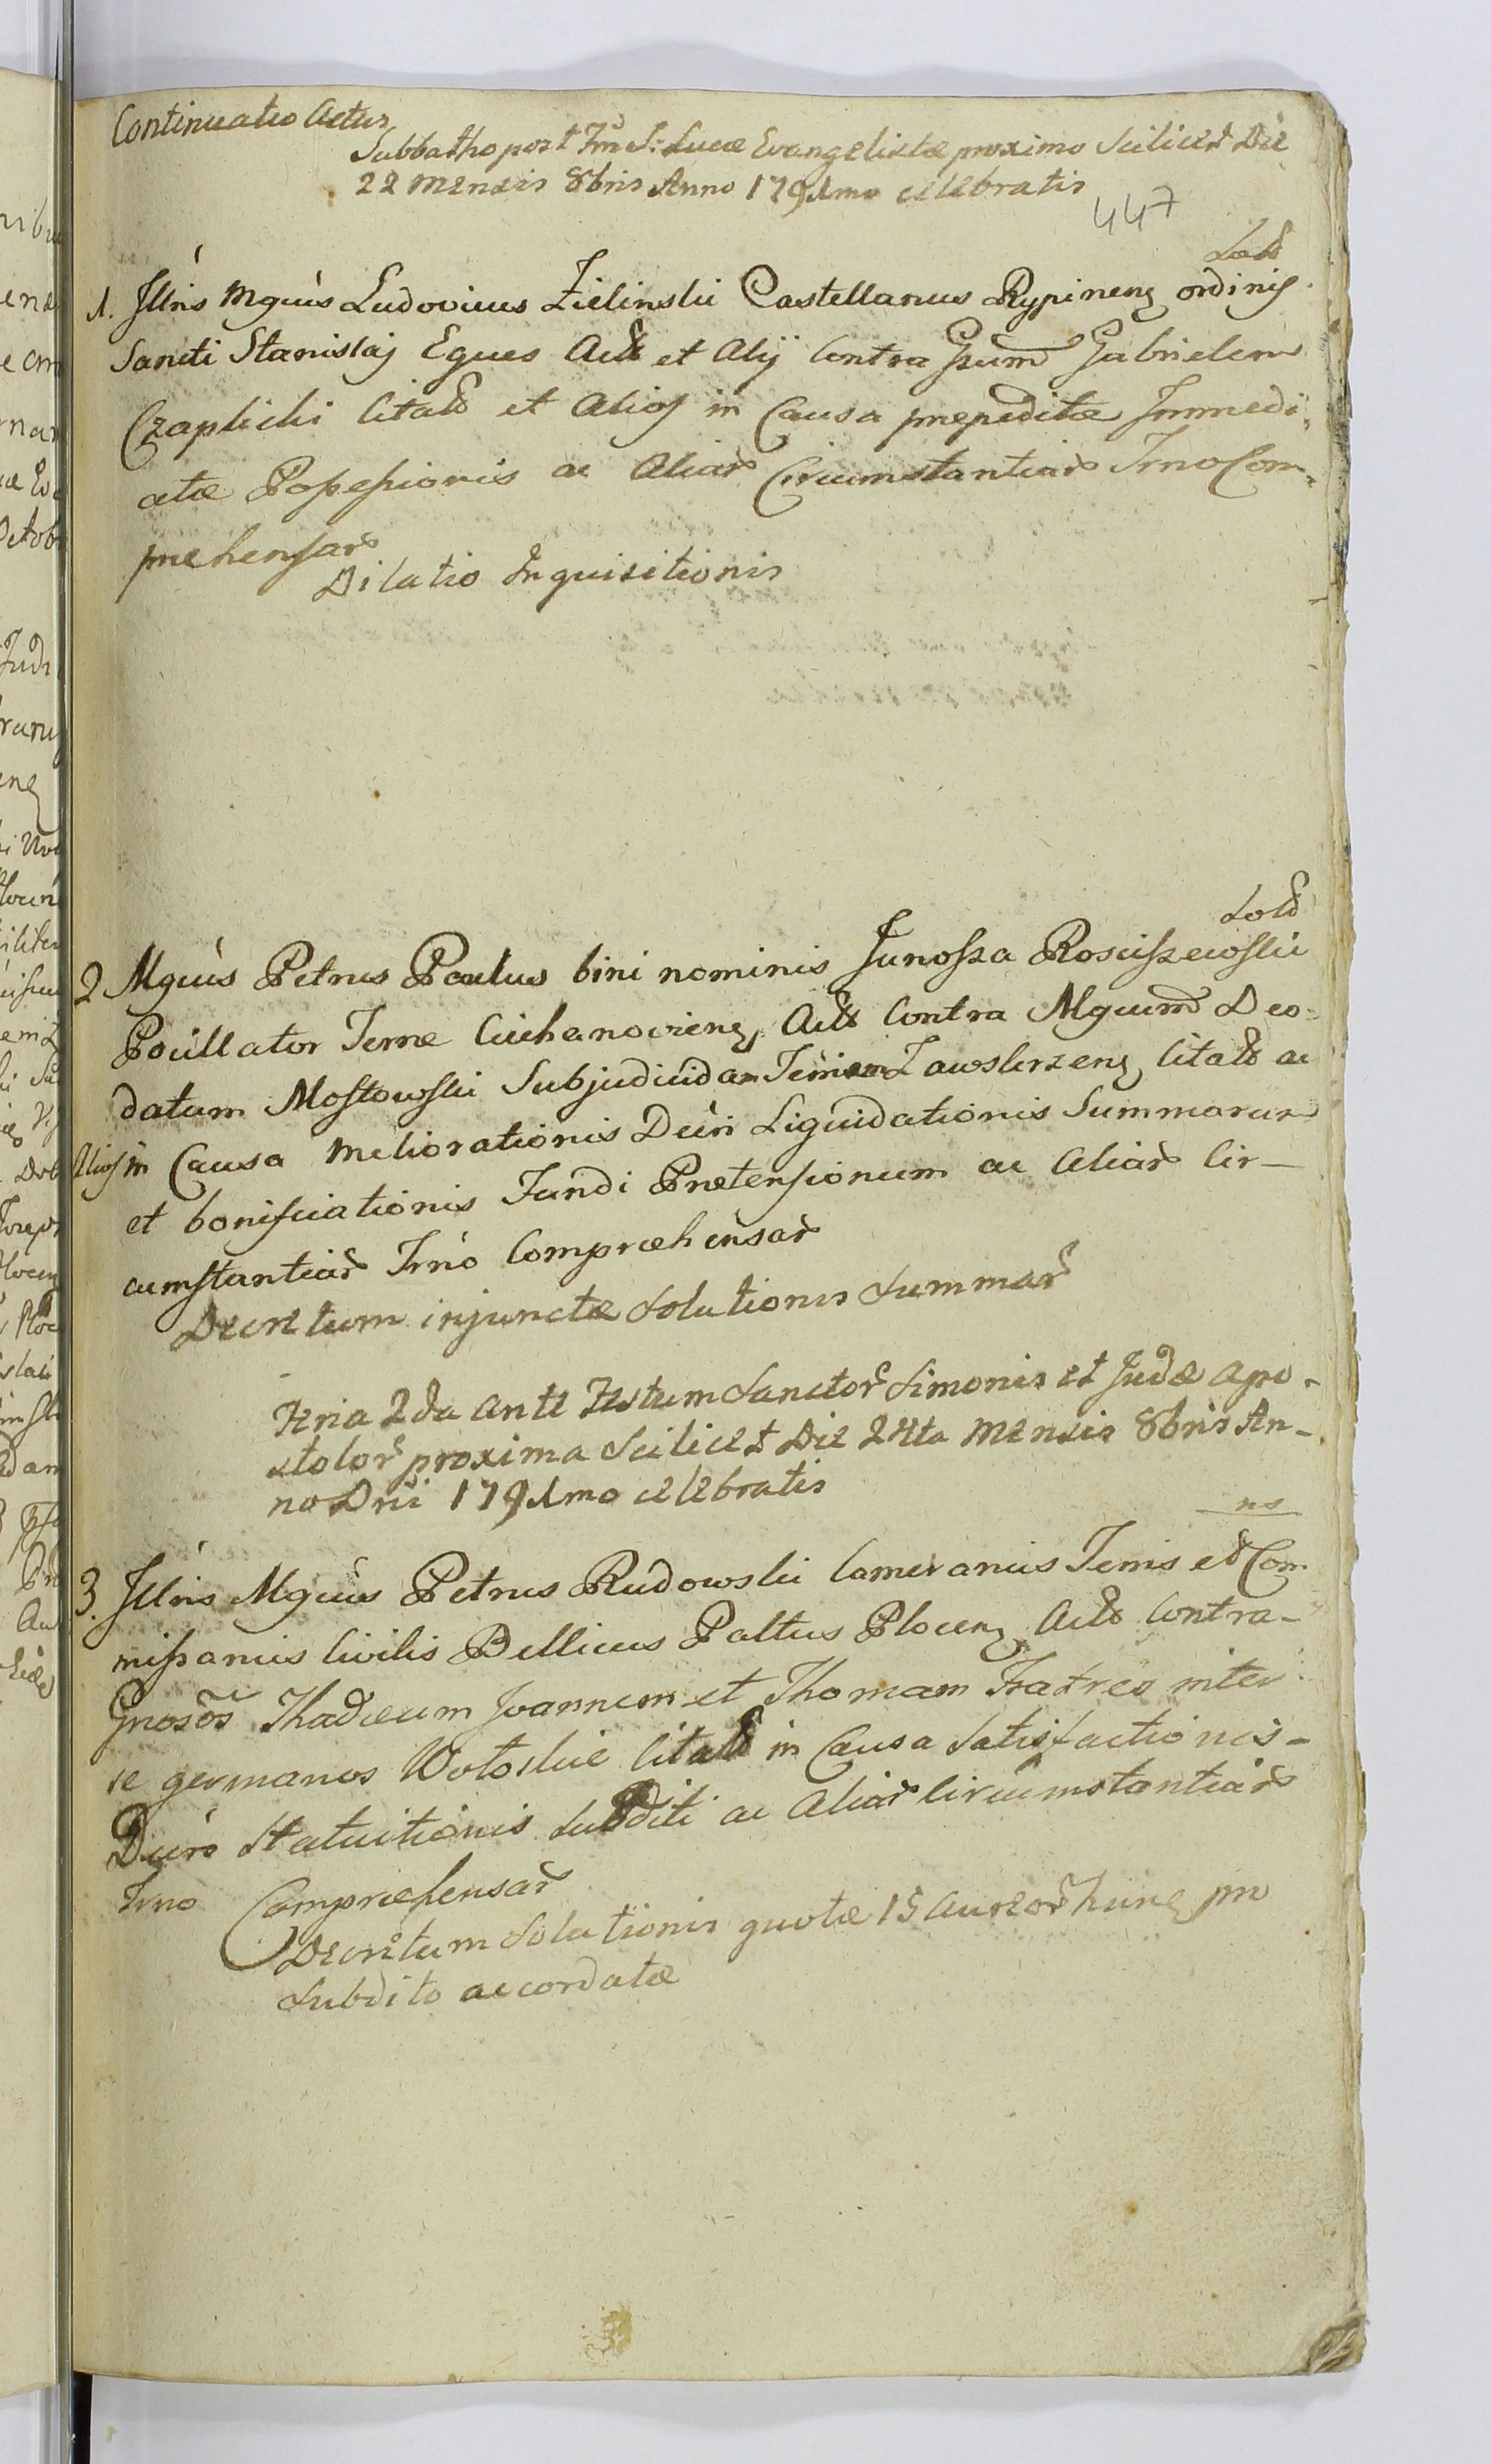 Continuatio Actus
Sabbatho post Fm̃ S: Lucæ Evangelistæ proximo scilicet Die
22 mensis 8bris Anno 1791mo celebratis
447
1. Illris Mgcus Ludovicus Zielinski Castellanus Rypinens ordinis
Sancti Stanislaj Eques Act et Alij Contra Gsum Gabrielem
Czaplicki Citat et Alios in Causa præpeditæ Immedi-
atæ Possessionis ac Aliar Circumstantiar Trno Com-
præhensar
Dilatio Inquisitionis
2 Mgcus Petrus Paulus bini nominis Junossa Rosciszewski
Pocillator Terræ Ciechanoviens, Act Contra Mgcum Deo-
datum Mostowski Subjudicidam Terræ Zawskrzens Citat ac
Alios in Causa Meliorationis Dcŕi Liquidationis Summarum
et bonificationis Fundi Prætensionum ac Aliar Cir-
cumstantiar Trno Compræhensar
Decretum injunctæ solutionis summar
Feria 2da ante Festum Sanctor Simonis et Judæ Apo-
stolor proxima scilicet Die 24ta mensis 8bris An-
no Dni 1791mo celebratis
ns
3. Illris Mgcus Petrus Rudowski Camerarius Terris et Com
missarius Civilis Bellicus Pattus Plocens, Act Contra
Gnosos Thadæum Joannem et Thomam Fratres inter
se germanos Wotoskie Citat in Causa satisfactionis
Dcŕo Statuitionis Subditi ac Aliar Circumstantiar
Trno Compræhensar
Decretum solutionis quotæ 15 Aureor hung pro
subdito accordatæ